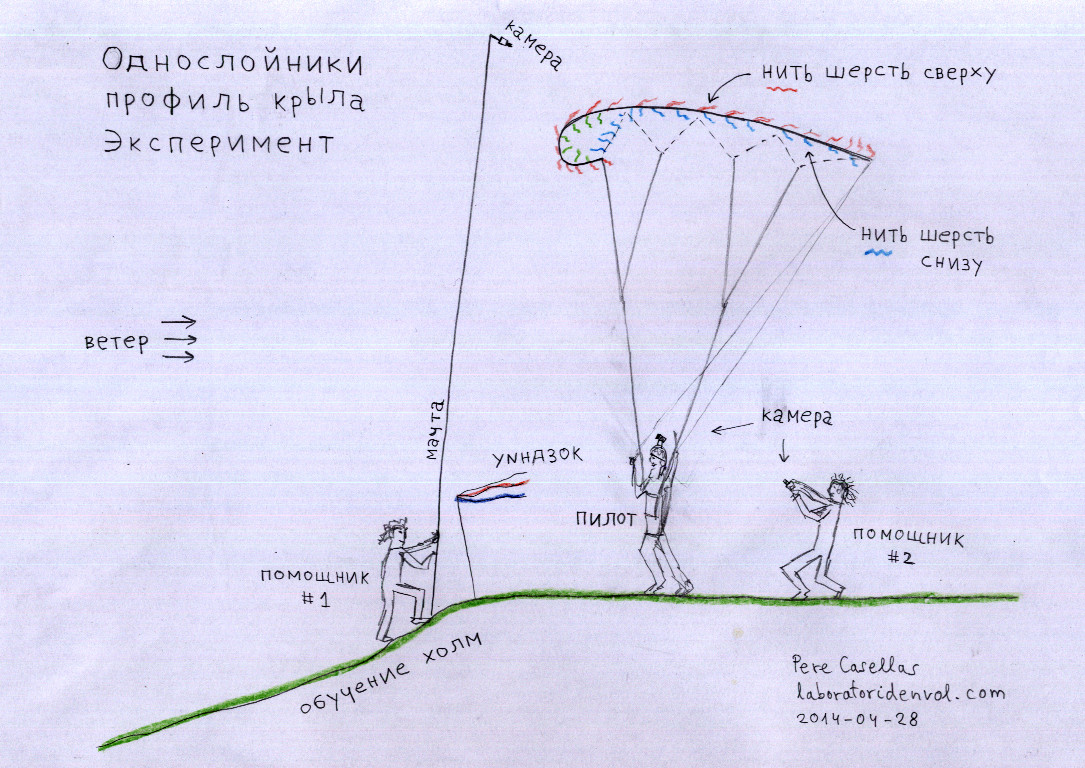 Однослойники
профиль крыла
Эксперимент
камера
нить шерсть сверху
нить шерсть
снизу
ветер
мачта
камера
уиндзок
пилот
помощник
#2
помощник
#1
обучение холм
Pere Casellas
laboratoridenvol.com
2014-04-28